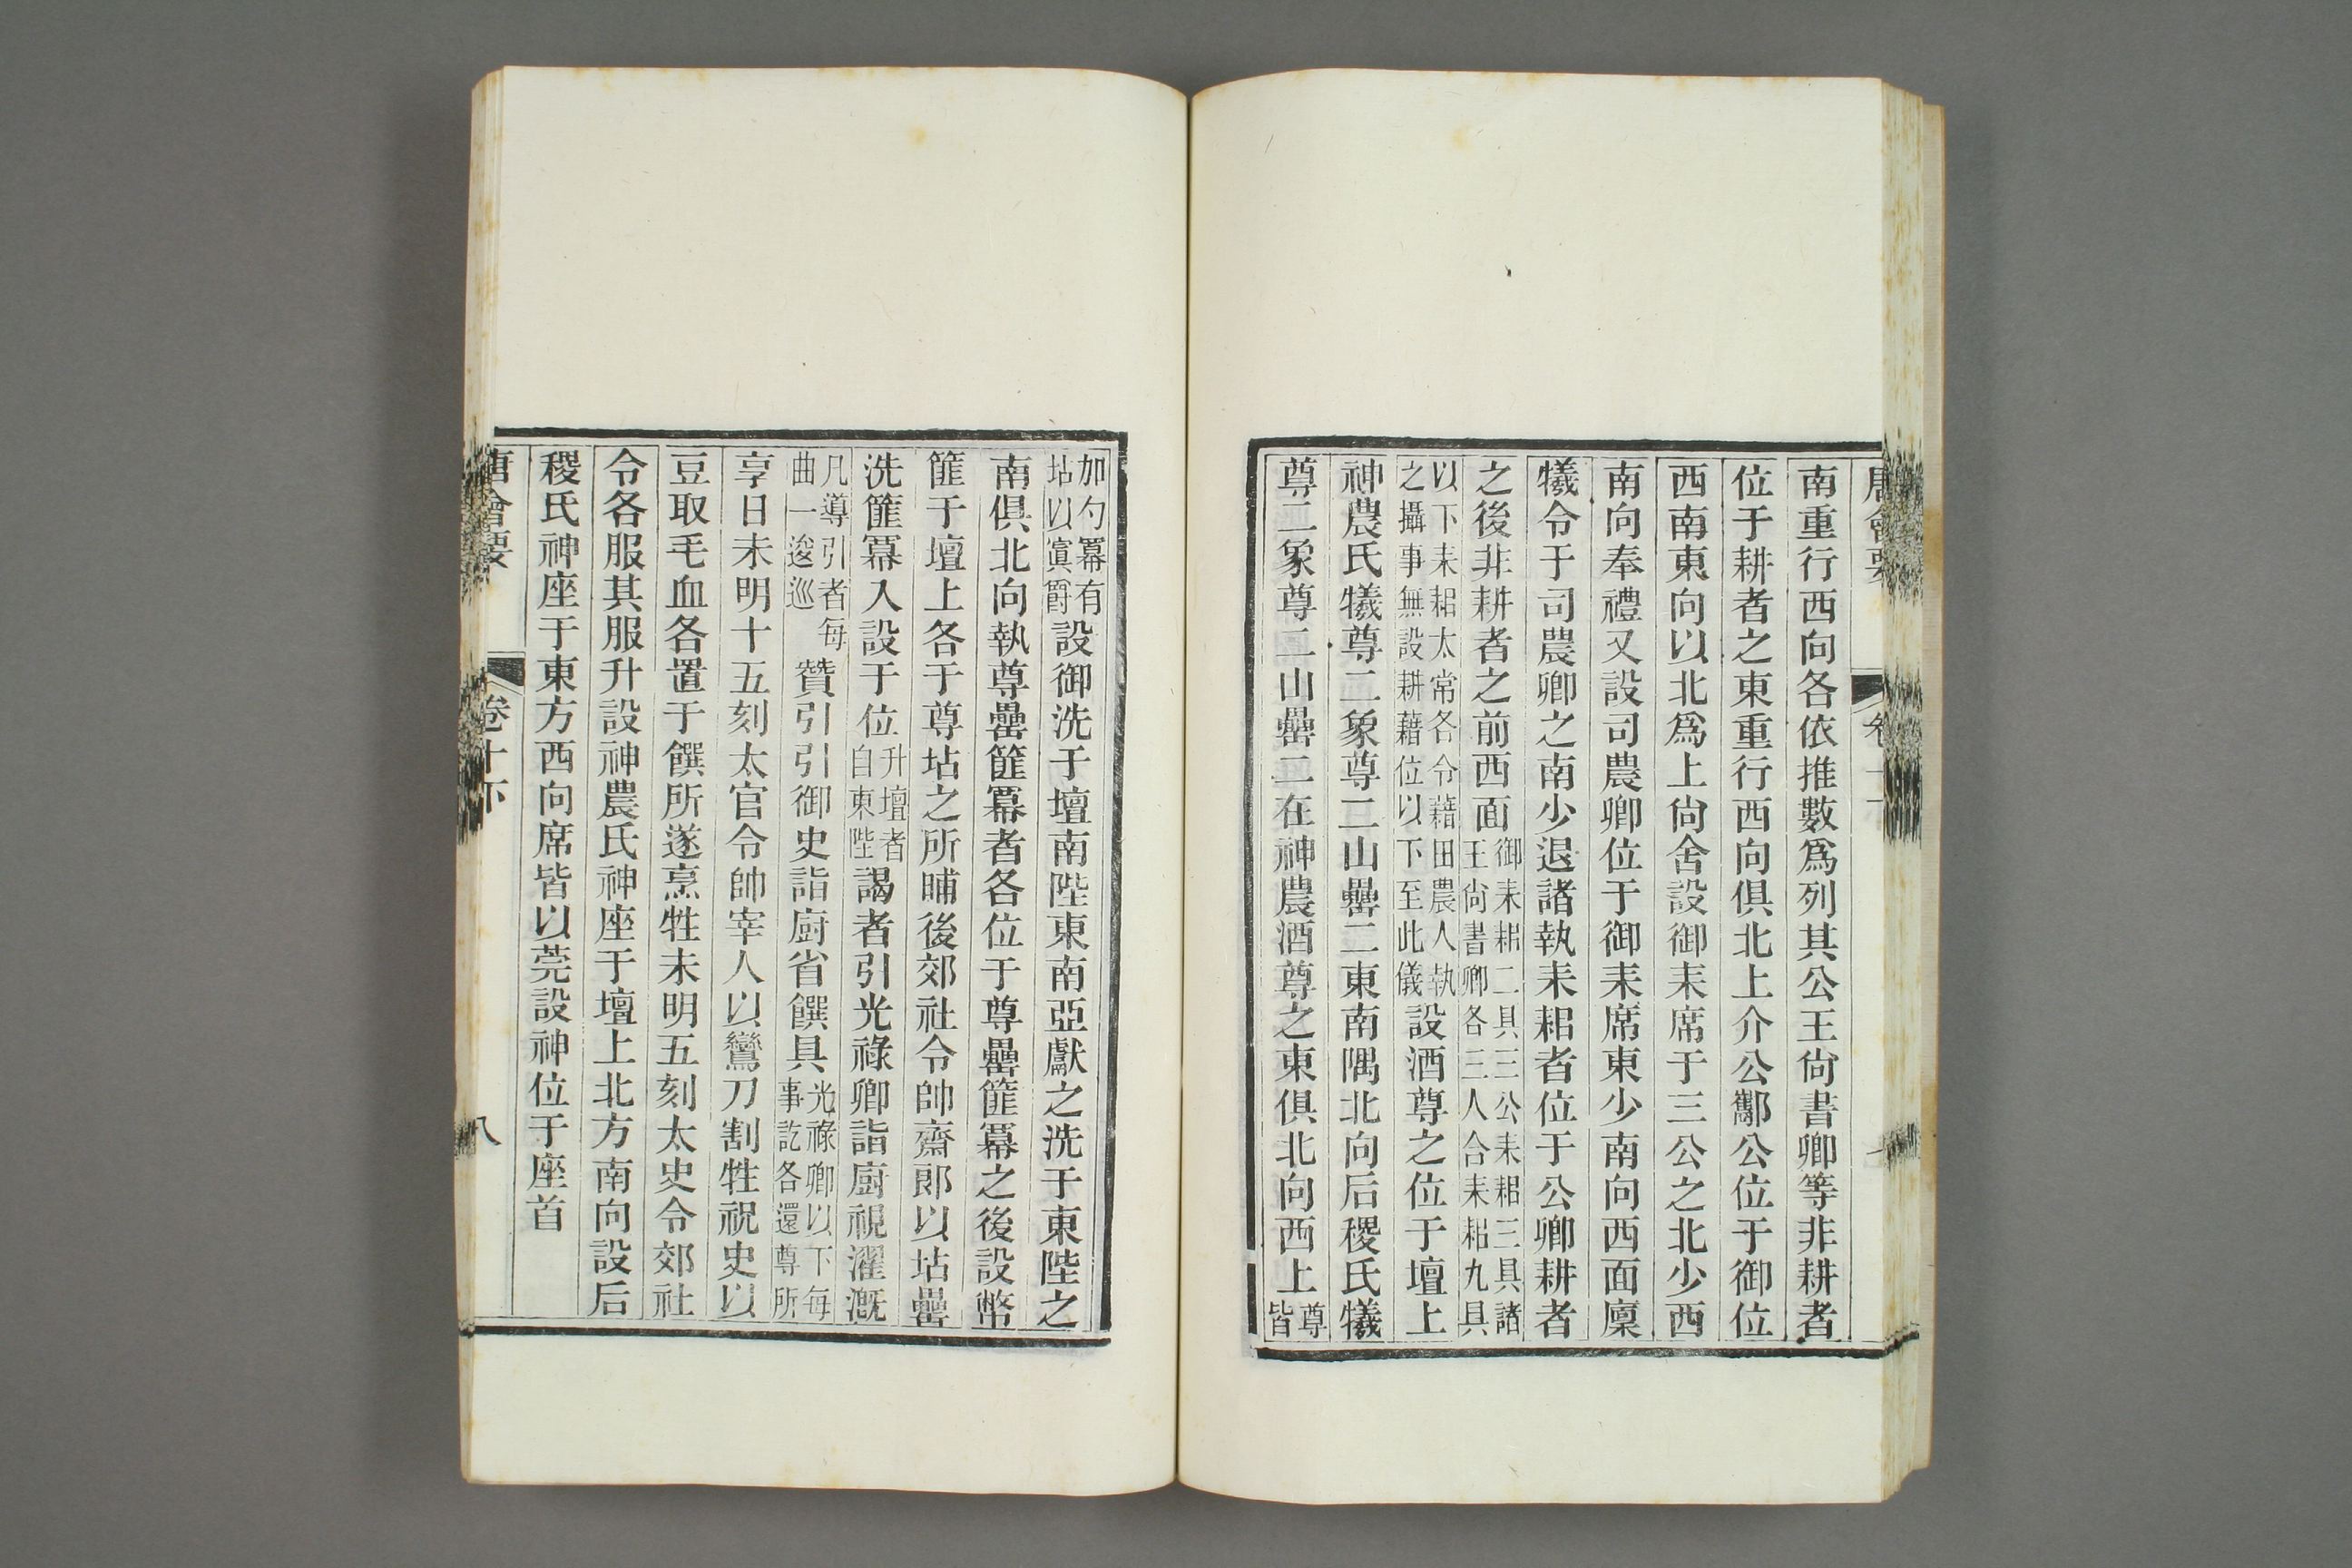 唐會要 卷十下
南重行西向各依推數爲列其公王尙書卿等非耕者
位于耕者之東重行西向俱北上介公酅公位于御位
西南東向以北爲上尙舍設御耒席于三公之北少西
南向奉禮又設司農卿位于御耒席東少南向西面廩
犧令于司農卿之南少退諸執耒耜者位于公卿耕者
之後非耕者之前西面御耒耜二具三公耒耜三具諸王尙書卿各三人合耒耜九具
以下耒耜太常各令藉田農人執之攝事無設耕藉位以下至此儀設酒尊之位于壇上
神農氏犧尊二象尊二山罍二東南隅北向后稷氏犧
尊二象尊二山罍二在神農酒尊之東俱北向西上尊皆
加勺冪有坫以寘爵設御洗于壇南陛東南亞獻之洗于東陛之
南俱北向執尊罍篚冪者各位于尊罍篚冪之後設幣
篚于壇上各于尊坫之所晡後郊社令帥齋郎以坫罍
洗篚冪入設于位升壇者自東陛謁者引光祿卿詣廚視濯漑
凡導引者每曲一逡巡贊引引御史詣廚省饌具光祿卿以下每事訖各還尊所
享日未明十五刻太官令帥宰人以鸞刀割牲祝史以
豆取毛血各置于饌所遂烹牲未明五刻太史令郊社
令各服其服升設神農氏神座于壇上北方南向設后
稷氏神座于東方西向席皆以莞設神位于座首
唐會要 卷十下 八